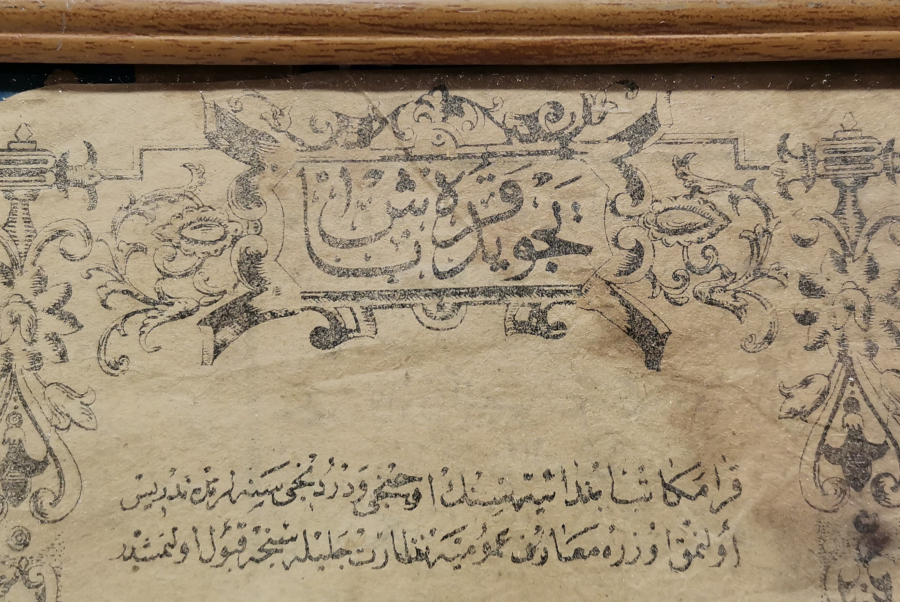 تجويد قره باش
قرا مكاتب ابتدائيه سنك اوچنجى و دردنجى سنه لرنده تدريس
اولنمق اوزره معارف عموميه نظارت جليله سنجه قبول اولنمشدر